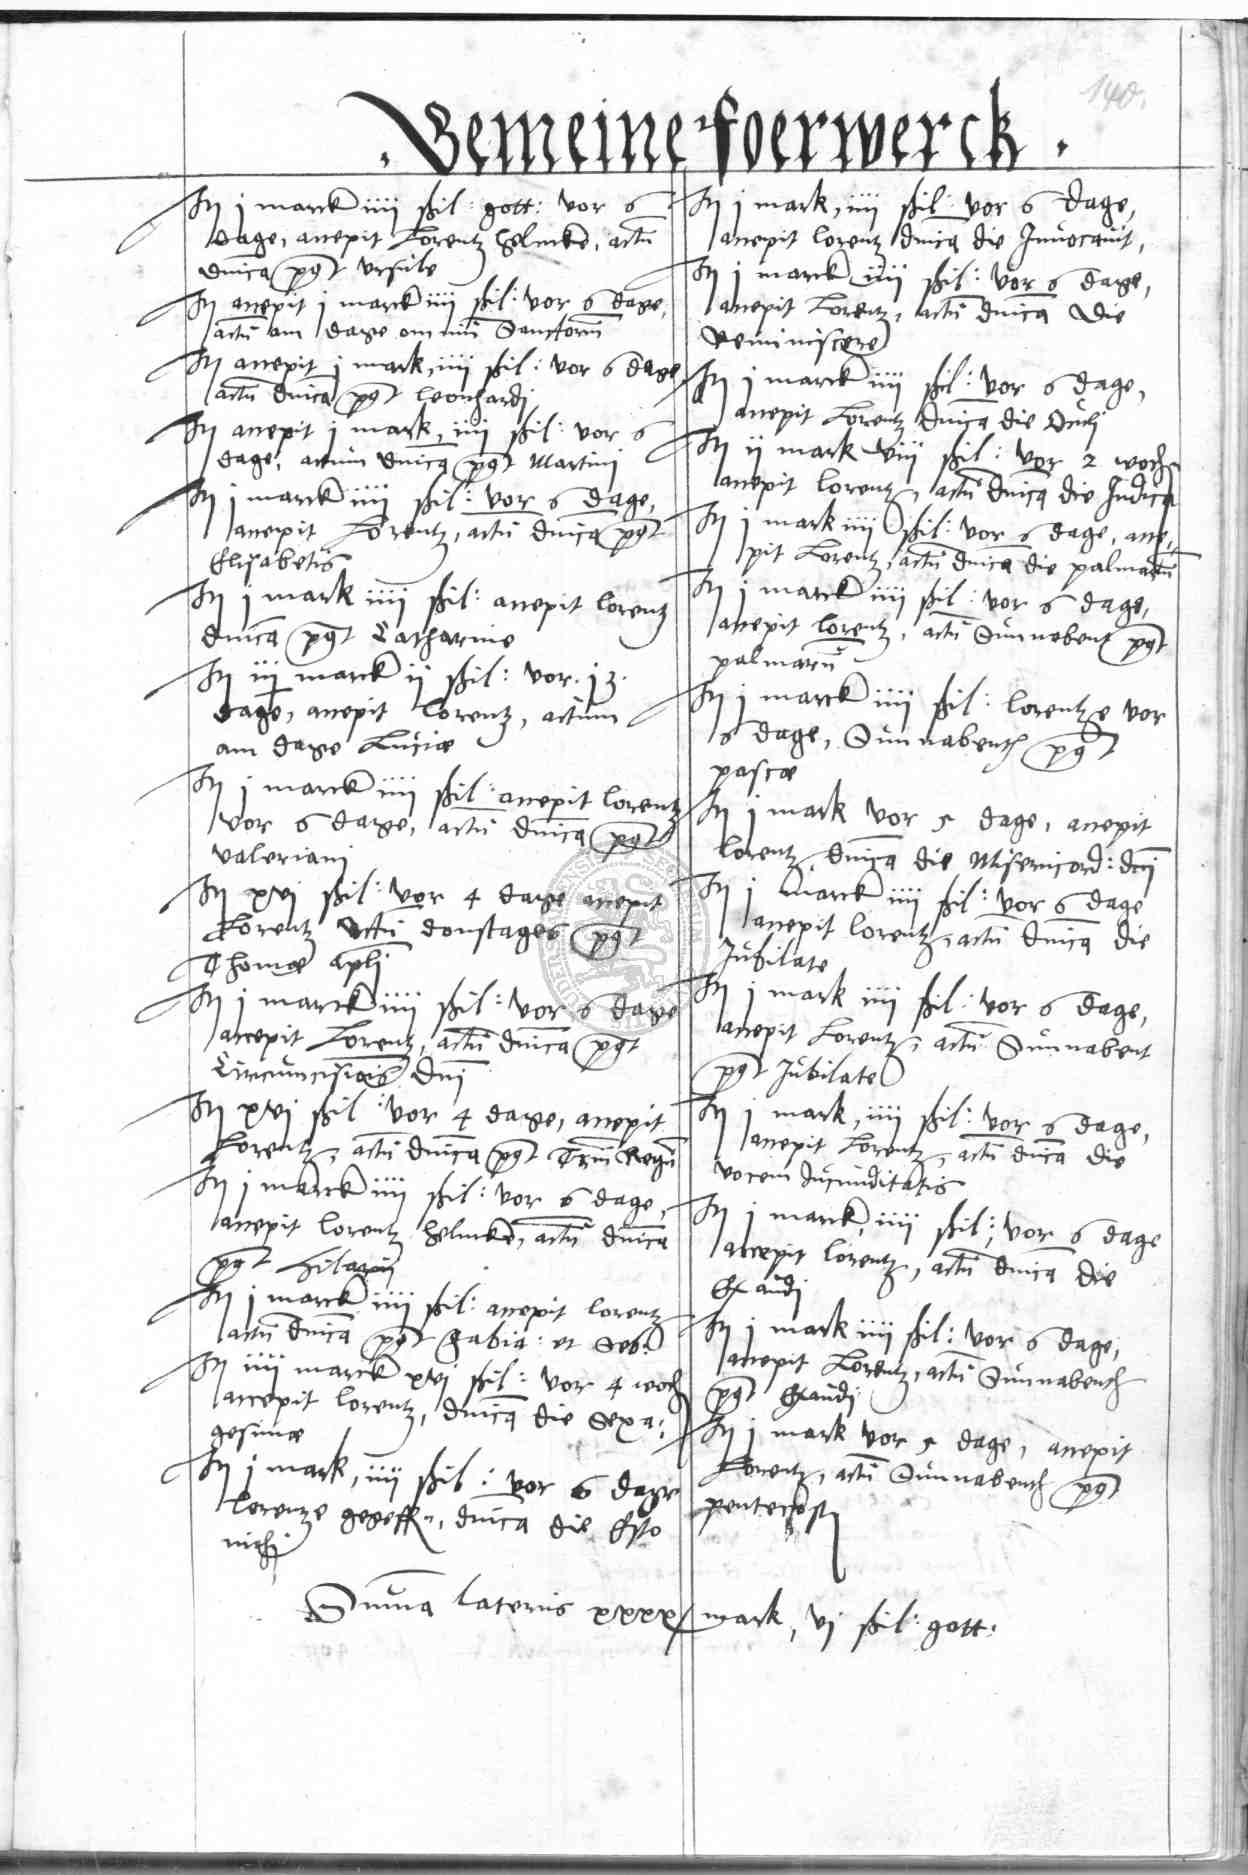 140.
. Gemeine foerwerck .
Itz j marck iiii ßil: gott: vor 6
dage, accepit Lorentz helmcke, actū
dnīca pꝰt ursule
Itz accepit j marck iiii ßil: vor 6 dage,
actū am dage omniū Sanctorū
Itz accepit j mark, iiii ßil: vor 6 dage
actū dnīca pꝰt leonhardj
Itz accepit j mark, iiii ßil: vor 6
dage, actum dnīca pꝰt Martini
Itz j marck iiii ßil: vor 6 dage,
accepit Lorentz, actū dnīca pꝰt
Elisabetis
Itz j mark iiii ßil: accepit lorentz
dnīca pꝰt Catharine
Itz iii marck ij ßil: vor . 13 .
dage, accepit lorentz, actum
am dage Luciæ
Itz j marck iiii ßil: accepit lorentz
vor 6 dage, actū dnīca pꝰt
valeriani
Itz xvj ßil: vor 4 dage accepit
Lorentz Actū donstages pꝰt
Thomæ apl̄i
Itz j marck iiii ßil: vor 6 dage
accepit Lorentz, actū dnīca pꝰt
Circumcisiōis Dnī
Itz xvj ßil: vor 4 dage, accepit
Lorentz, actū dnīca pꝰt Triū Regū
Itz j marck iiii ßil: vor 6 dage,
accepit lorentz helmcke, actū dnīca
pꝰt Hilarij
Itz j marck iiii ßil: accepit lorentz
actū dnīca pꝰt fabia: et Seb:
Itz iiii marck xvj ßil: vor 4 woch
accepit lorentz, dnīca die Sexa:
gesimæ
Itz j mark, iiii ßil: vor 6 dage
lorentze gegeffn, dnīca die Esto
michj
Itz j mark, iiii ßil: vor 6 dage,
accepit lorentz dnīca die Invocavit,
Itz j marck iiii ßil: vor 6 dage,
accepit Lorentz, actū dnīca Die
Reminiscere
Itz j marck iiii ßil: vor 6 dage,
accepit Lorentz dnīca die Oculj
Itz ij mark viij ßil: vor 2 woch
accepit lorentz, actū dnīca die Judica
Itz j mark iiii ßil: vor 6 dage, acce,
pit Lorentz, actū dnīca die palmarū
Itz j marck iiii ßil: vor 6 dage,
accepit lorentz, actū Sunnabent pꝰt
palmarū
Itz j marck iiii ßil: lorentze vor
6 dage, Sunnabenth pꝰt
pascæ
Itz j mark vor 5 dage, accepit
lorentz, dnīca die Misericord: dnī
Itz j marck iiii ßil: vor 6 dage
accepit lorentz, actū dnīca die
Jubilate
Itz j mark iiii ßil: vor 6 dage,
accepit Lorentz, actū Sunnabent
pꝰt Jubilate
Itz j mark, iiii ßil: vor 6 dage,
accepit Lorentz, actū dnīca die
vocem Jucunditatis
Itz j marck, iiii ßil: vor 6 dage
accepit lorentz, actū dnīca die
Exaudi
Itz j mark iiii ßil: vor 6 dage,
accepit Lorentz, actū Sunnabenth
pꝰt Exaudi
Itz j mark vor 5 dage, accepit
Lorentz, actū Sunnabenth pꝰt
pentecost
Sum̄a lateris xxxx mark, vj ßil: gott: